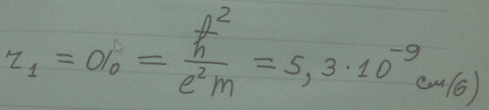 r₁ = a₀ = ħ² / e² m = 5,3 · 10⁻⁹ см (6)